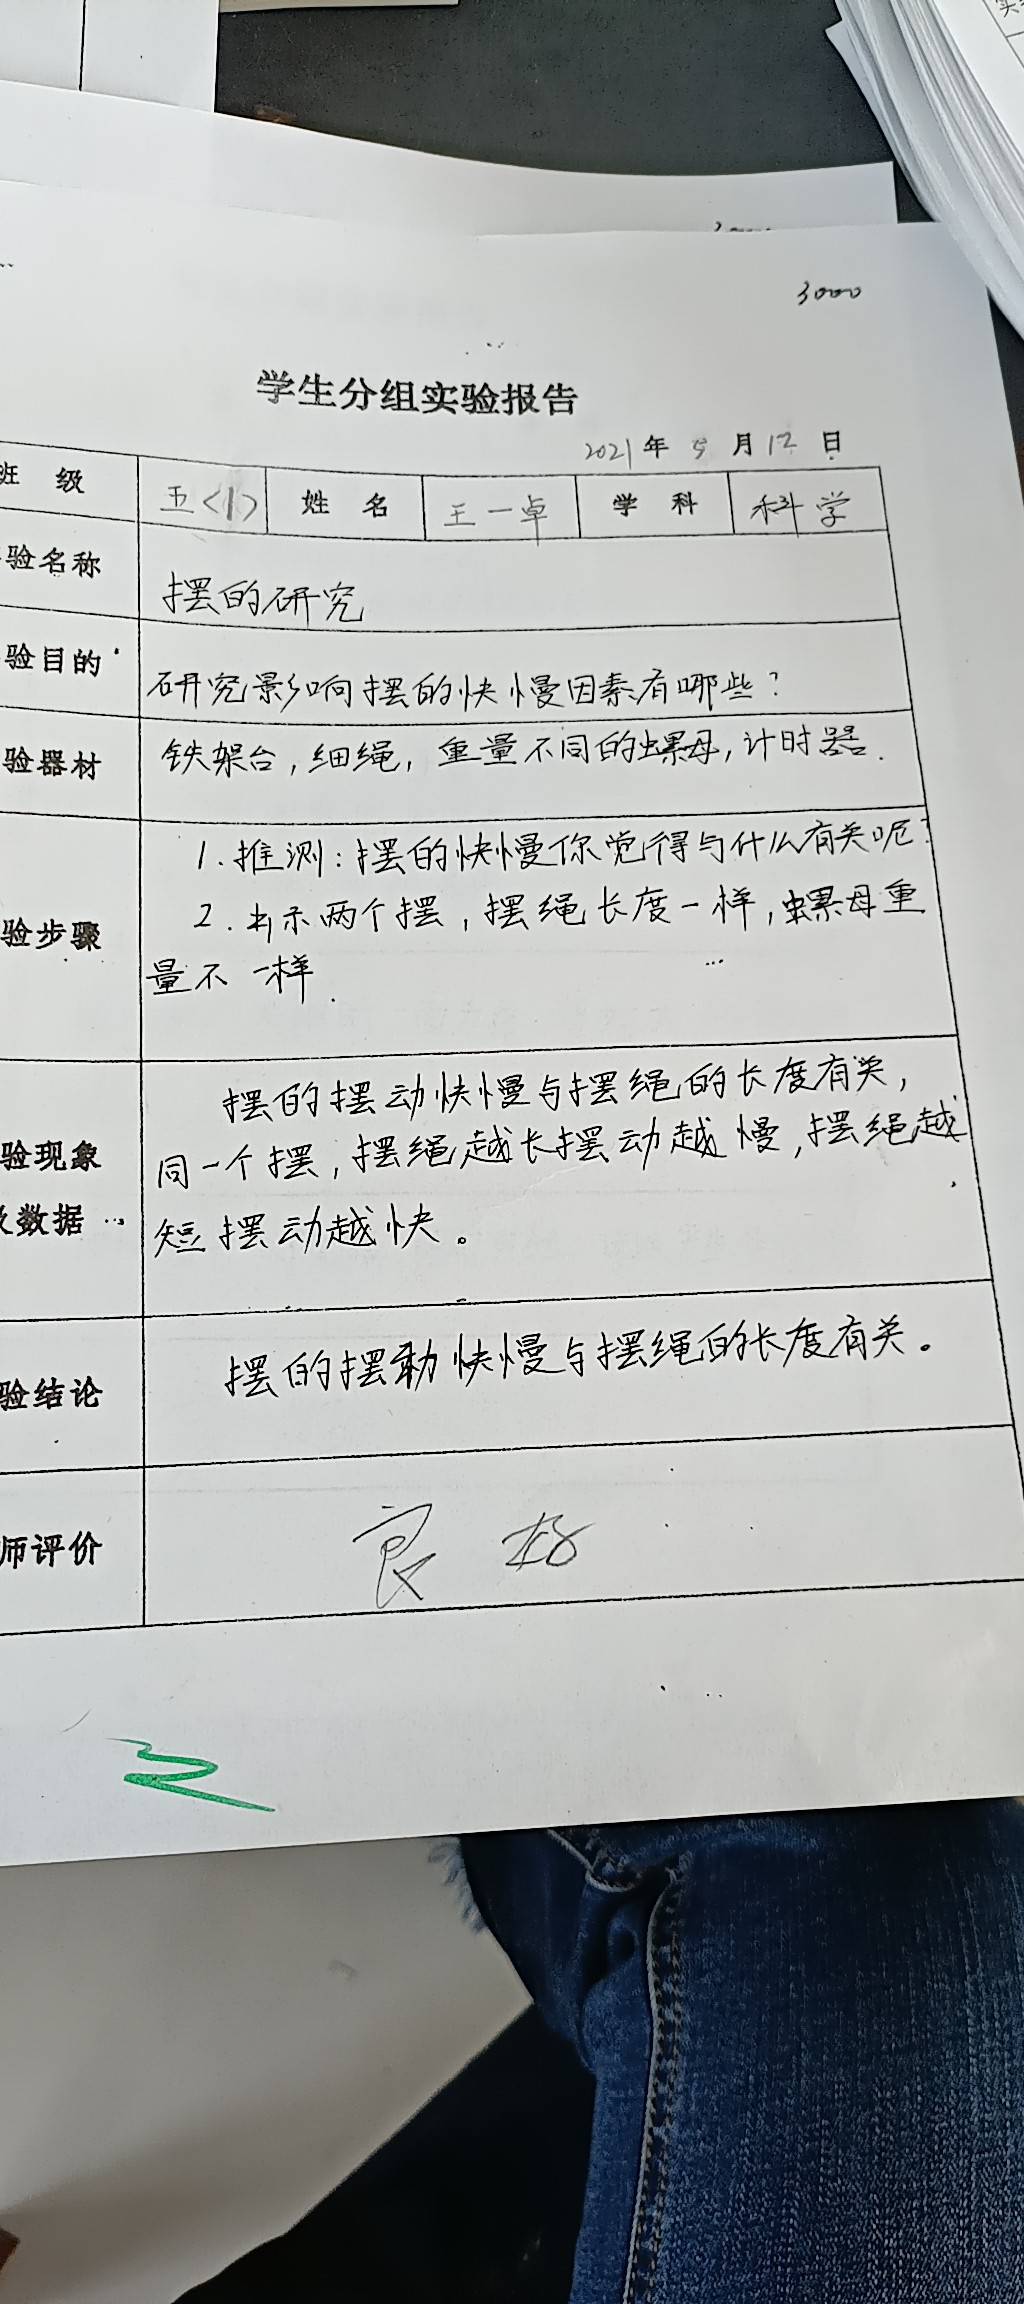 3000
学生分组实验报告
2021年5月12日
班 级 五<1> 姓 名 王一卓 学 科 科学
验名称 摆的研究
验目的 研究影响摆的快慢因素有哪些?
验器材 铁架台,细绳,重量不同的螺母,计时器.
1.推测:摆的快慢你觉得与什么有关呢?
验步骤 2. 示两个摆,摆绳长度一样,螺母重
量不一样.
摆的摆动快慢与摆绳的长度有关,
验现象 同一个摆,摆绳越长摆动越慢,摆绳越
数据 短摆动越快。
验结论 摆的摆动快慢与摆绳的长度有关。
师评价 良好